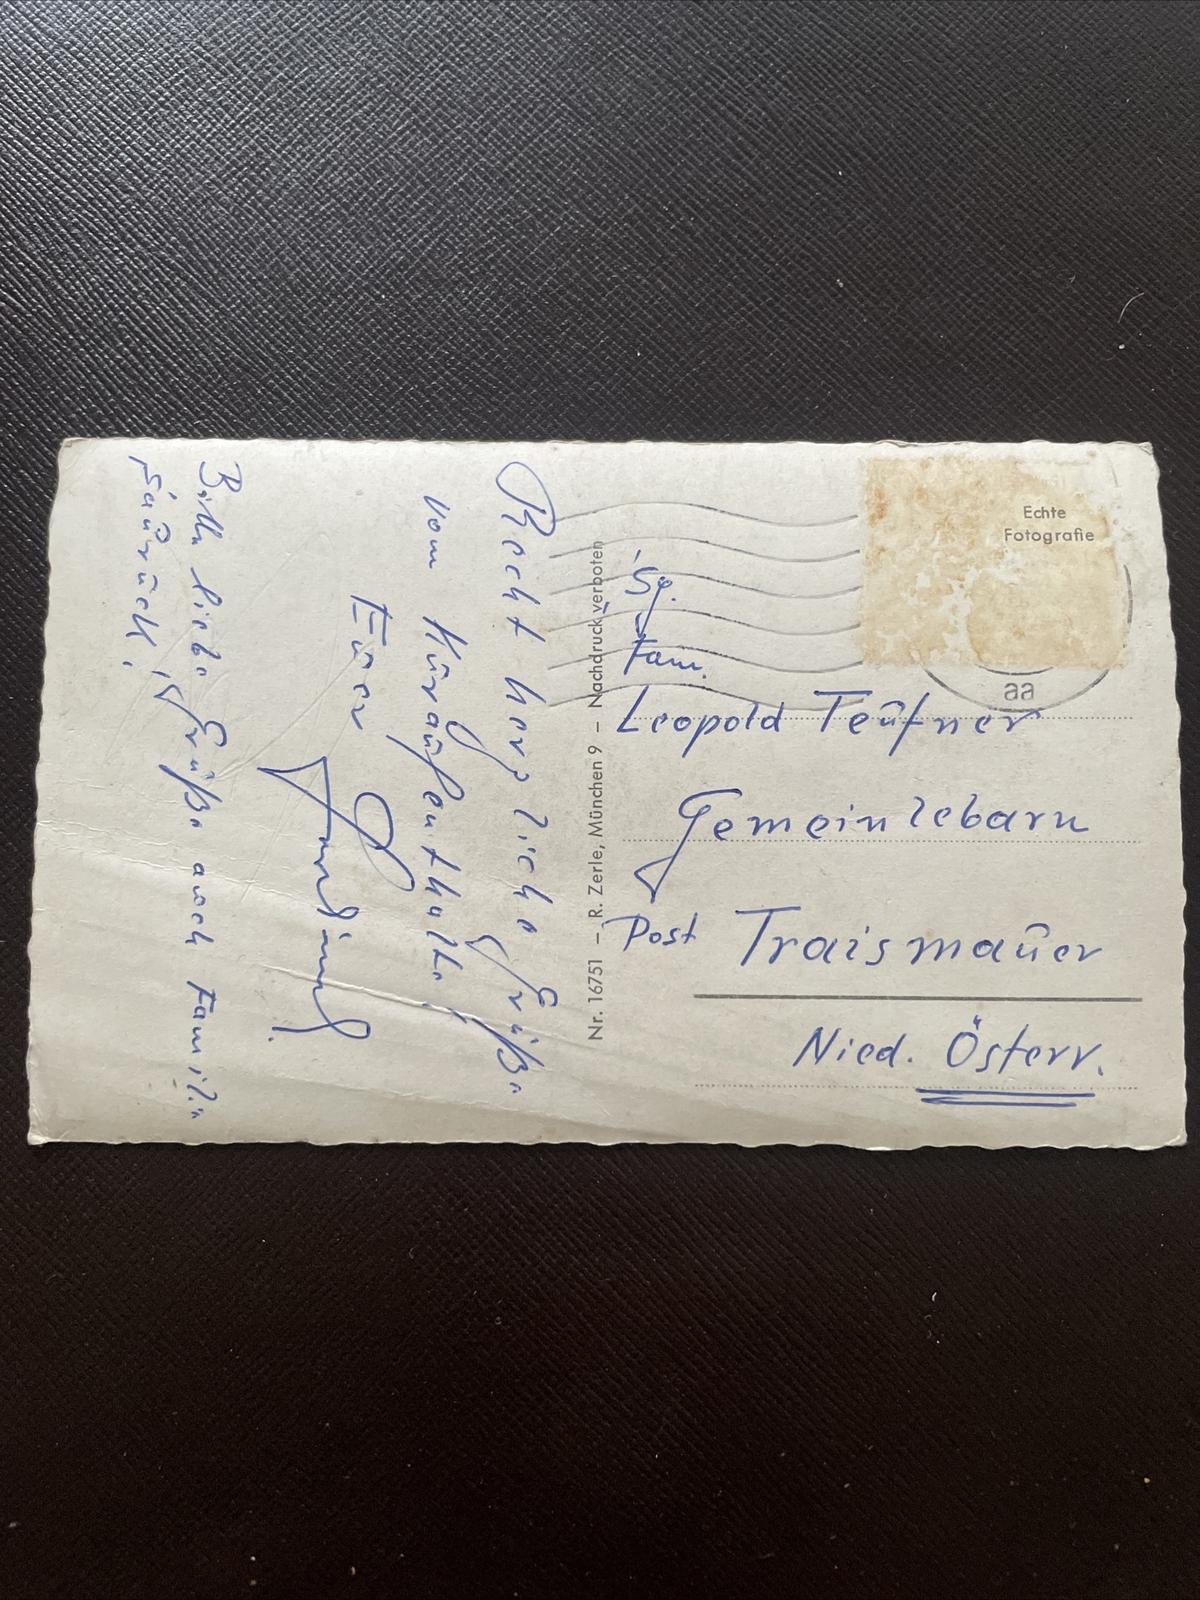 Recht herzliche Grüße
vom Kuraufenthalte
Euer
Bitte liebe Grüße auch Familie
zurück!
Nr. 16751 – R. Zerle, München 9 – Nachdruck verboten
Echte
Fotografie
aa
Sg.
Fam.
Leopold Teufner
Gemeinlebarn
Post Traismauer
Nied. Österr.